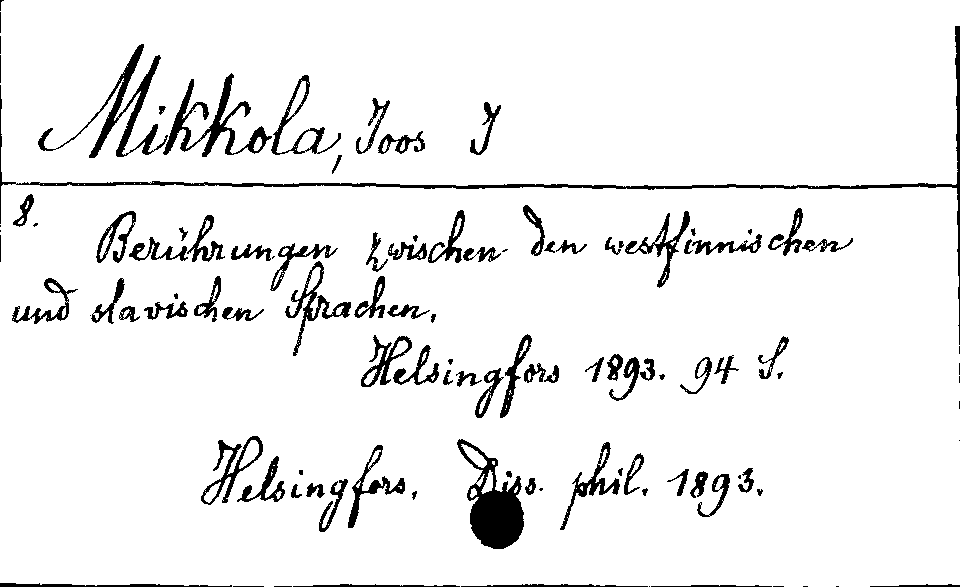 Mikkola, Joos J
8.
Berührungen zwischen den westfinnischen
und slavischen Sprachen.
Helsingfors 1893. 94 S.
Helsingfors. Diss. phil. 1893.